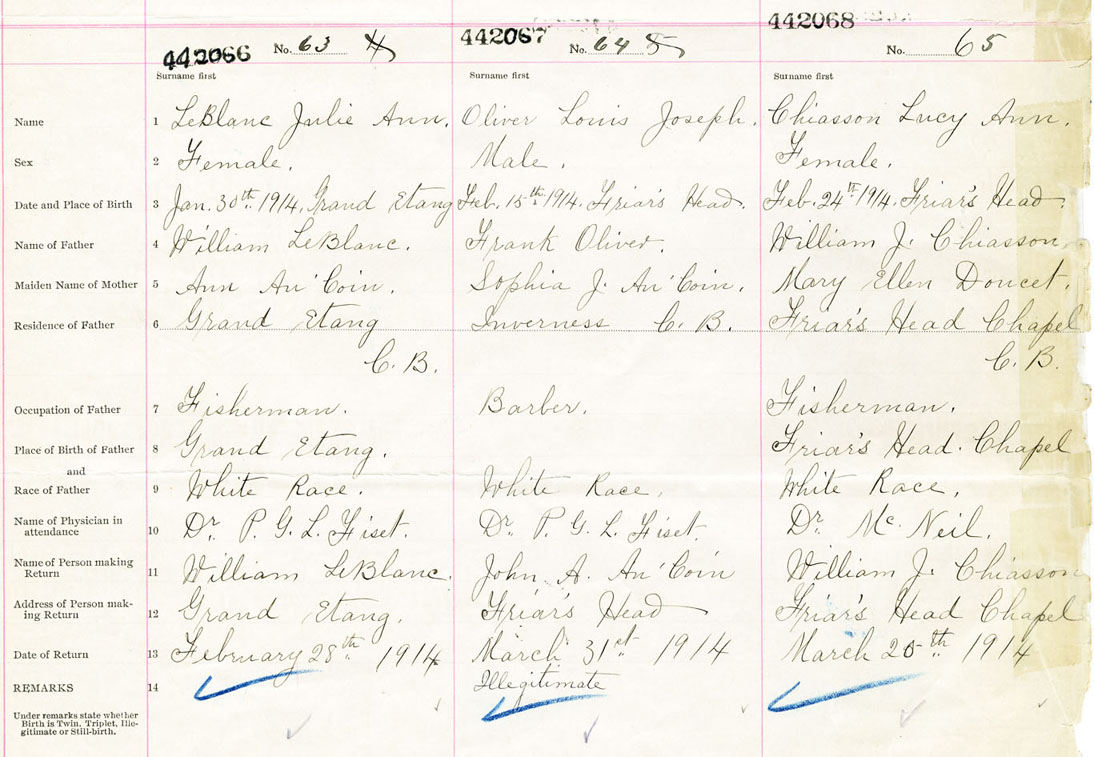 442066 No. 63 442067 No. 64 5 442068 No. 65
Surname first Surname first Surname first
Name 1 LeBlanc Julie Ann. Oliver Louis Joseph. Chiasson Lucy Ann.
Sex 2 Female. Male. Female.
Date and Place of Birth 3 Jan. 30th 1914. Grand Etang Feb. 15th 1914. Friar's Head. Feb. 24th 1914. Friar's Head.
Name of Father 4 William LeBlanc. Frank Oliver. William J. Chiasson
Maiden Name of Mother 5 Ann An'Coin. Sophia J. An'Coin. Mary Ellen Doucet.
Residence of Father 6 Grand Etang Inverness C. B. Friar's Head Chapel
C. B. C. B.
Occupation of Father 7 Fisherman. Barber. Fisherman.
Place of Birth of Father 8 Grand Etang. Friar's Head. Chapel
and
Race of Father 9 White Race. White Race. White Race.
Name of Physician in
attendance 10 Dr. P. G. L. Fiset. Dr. P. G. L. Fiset. Dr. Mc. Neil.
Name of Person making
Return 11 William LeBlanc. John A. An'Coin William J. Chiasson
Address of Person mak-
ing Return 12 Grand Etang. Friar's Head Friar's Head Chapel
Date of Return 13 February 28th 1914 March 31st 1914 March 20th 1914
REMARKS 14 Illegitimate
Under remarks state whether
Birth is Twin, Triplet, Ille-
gitimate or Still-birth.